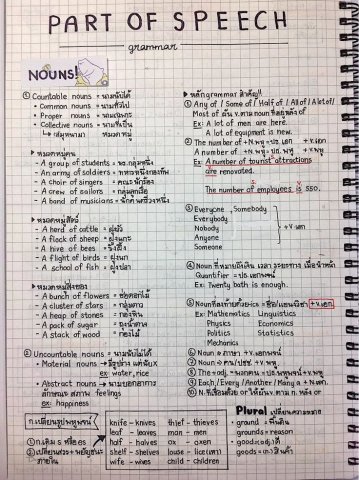 PART OF SPEECH
grammar
NOUNS!
① Countable nouns = นามนับได้
• Common nouns = นามทั่วไป
• Proper nouns = นามเฉพาะ
• Collective nouns = นามที่เป็น
กลุ่มหมวดหมู่
▸ หมวดหมู่คน
- A group of students : นร.กลุ่มหนึ่ง
- An army of soldiers : ทหารหนึ่งกองทัพ
- A choir of singers : คณะนักร้อง
- A crew of sailors : กลุ่มลูกเรือ
- A band of musicians : นักดนตรีวงหนึ่ง
▸ หมวดหมู่สัตว์
- A herd of cattle = ฝูงวัว
- A flock of sheep = ฝูงแกะ
- A hive of bees = รังผึ้ง
- A flight of birds = ฝูงนก
- A school of fish = ฝูงปลา
▸ หมวดหมู่สิ่งของ
- A bunch of flowers = ช่อดอกไม้
- A cluster of stars = กลุ่มดาว
- A heap of stones = กองหิน
- A pack of sugar = ถุงน้ำตาล
- A stack of wood = กองไม้
② Uncountable nouns = นามนับไม่ได้
• Material nouns = มีรูปร่าง แต่นับ x
ex: water, rice
• Abstract nouns = นามบอกอาการ
ลักษณะ สภาพ feelings
ex: happiness
ก.เปลี่ยนรูปพหูพจน์
① ก.เติม s หรือ es
② เปลี่ยนสระ + พยัญชนะ
ภายใน
knife - knives thief - thieves
leaf - leaves man - men
half - halves ox - oxen
shelf - shelves louse - lice (เหา)
wife - wives child - children
▸ หลัก grammar สำคัญ!!
① Any of / Some of / Half of / All of / A lot of /
Most of
Ex: A lot of men are here.
A lot of equipment is new.
② The number of + N.พหู = ปธ.เอก + v.เอก
A number of + N.พหู = ปธ.พหู + v.พหู
Ex: A number of tourist attractions
are renovated.
The number of employees is 550.
③ Everyone, Somebody
Everybody
Nobody
Anyone
Someone
+ v.เอก
④ Noun ที่หมายถึงเงิน เวลา ระยะทาง
Quantifier = ปธ.เอกพจน์
Ex: Twenty bath is enough.
⑤ Noun ที่ลงท้ายด้วย ics = ชื่อ + v.เอก
Ex: Mathematics Linguistics
Physics Economics
Politics Statistics
Mechanics
⑥ Noun = ภาษา + v.เอกพจน์
⑦ Noun = + v.พหู
⑧ The + adj. = พวกคน = ปธ.พหูพจน์ + v.พหู
⑨ Each / Every / Another / Many a + N.เอก
Plural เปลี่ยนความหมาย
• ground = พื้นดิน
grounds = reason
• good = (adj.) ดี
goods = (n.) สินค้า